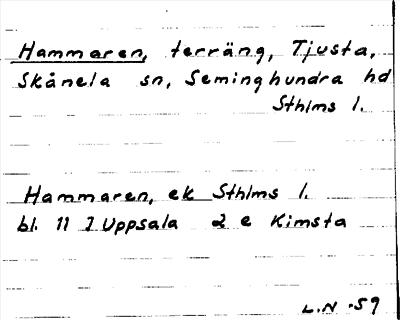 Hammaren, terräng, Tjusta,
Skånela sn, Seminghundra hd
Sthlms l.
Hammaren, ek Sthlms l.
bl. 11 J Uppsala 2 e Kimsta
L.N -59